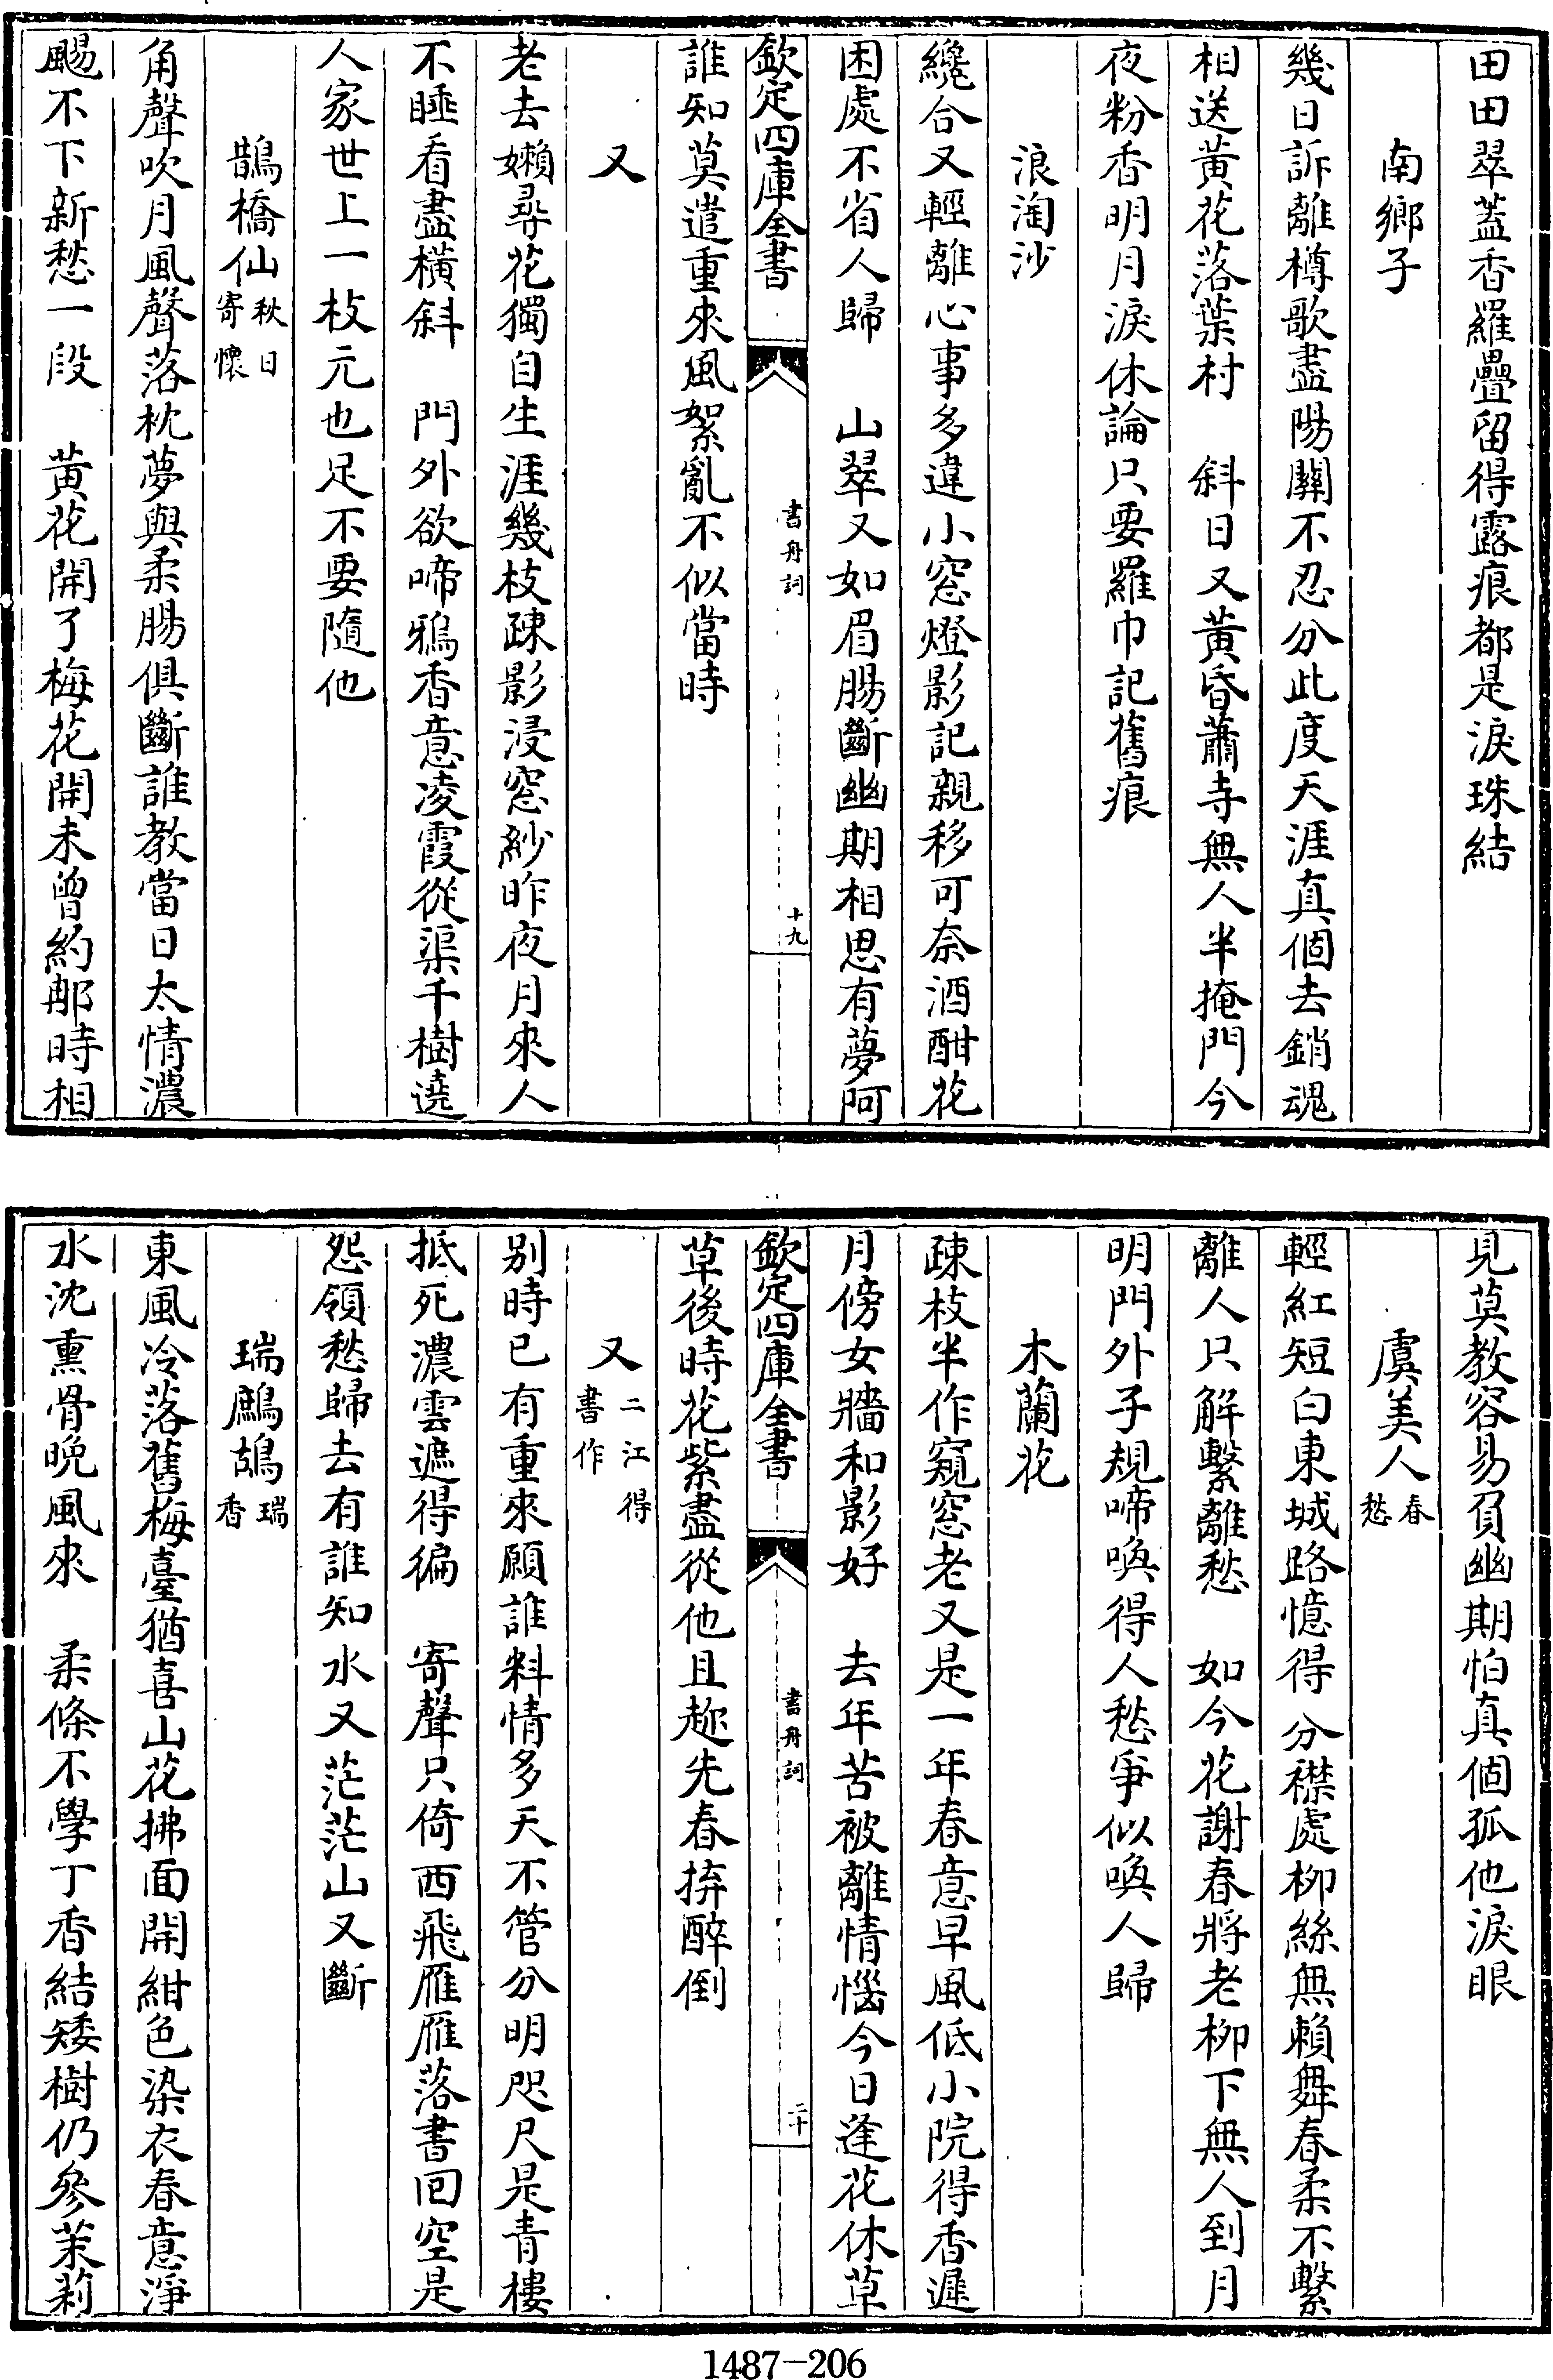 田田翠蓋香羅疊留得露痕都是淚珠結
南鄉子
幾日訴離樽歌盡陽關不忍分此度天涯真個去銷魂
相送黃花落葉村　斜日又黃昏蕭寺無人半掩門今
夜粉香明月淚休論只要羅巾記舊痕
浪淘沙
纔合又輕離心事多違小窓燈影記親移可奈酒酣花
困處不省人歸　山翠又如眉腸斷幽期相思有夢阿
欽定四庫全書
書舟詞
十九
誰知莫遣重來風絮亂不似當時
又
老去嬾尋花獨自生涯幾枝疎影浸窓紗昨夜月來人
不睡看盡橫斜　門外欲啼鴉香意凌霞從渠千樹遶
人家世上一枝元也足不要隨他
鵲橋仙秋日
寄懷
角聲吹月風聲落枕夢與柔腸俱斷誰教當日太情濃
颺不下新愁一段　黃花開了梅花開未曾約那時相
見莫教容易負幽期怕真個孤他淚眼
虞美人春
愁
輕紅短白東城路憶得分襟處柳絲無賴舞春柔不繫
離人只解繫離愁　如今花謝春將老柳下無人到月
明門外子規啼喚得人愁爭似喚人歸
木蘭花
疎枝半作窺窓老又是一年春意早風低小院得香遲
月傍女牆和影好　去年苦被離情惱今日逢花休草
欽定四庫全書
書舟詞
二十
草後時花紫盡從他且趂先春拚醉倒
又二江得
書作
別時已有重來願誰料情多天不管分明咫尺是青樓
抵死濃雲遮得徧　寄聲只倚西飛雁雁落書回空是
怨領愁歸去有誰知水又茫茫山又斷
瑞鷓鴣瑞
香
東風冷落舊梅臺猶喜山花拂面開紺色染衣春意淨
水沈熏骨晚風來　柔條不學丁香結矮樹仍參茉莉
1487-206